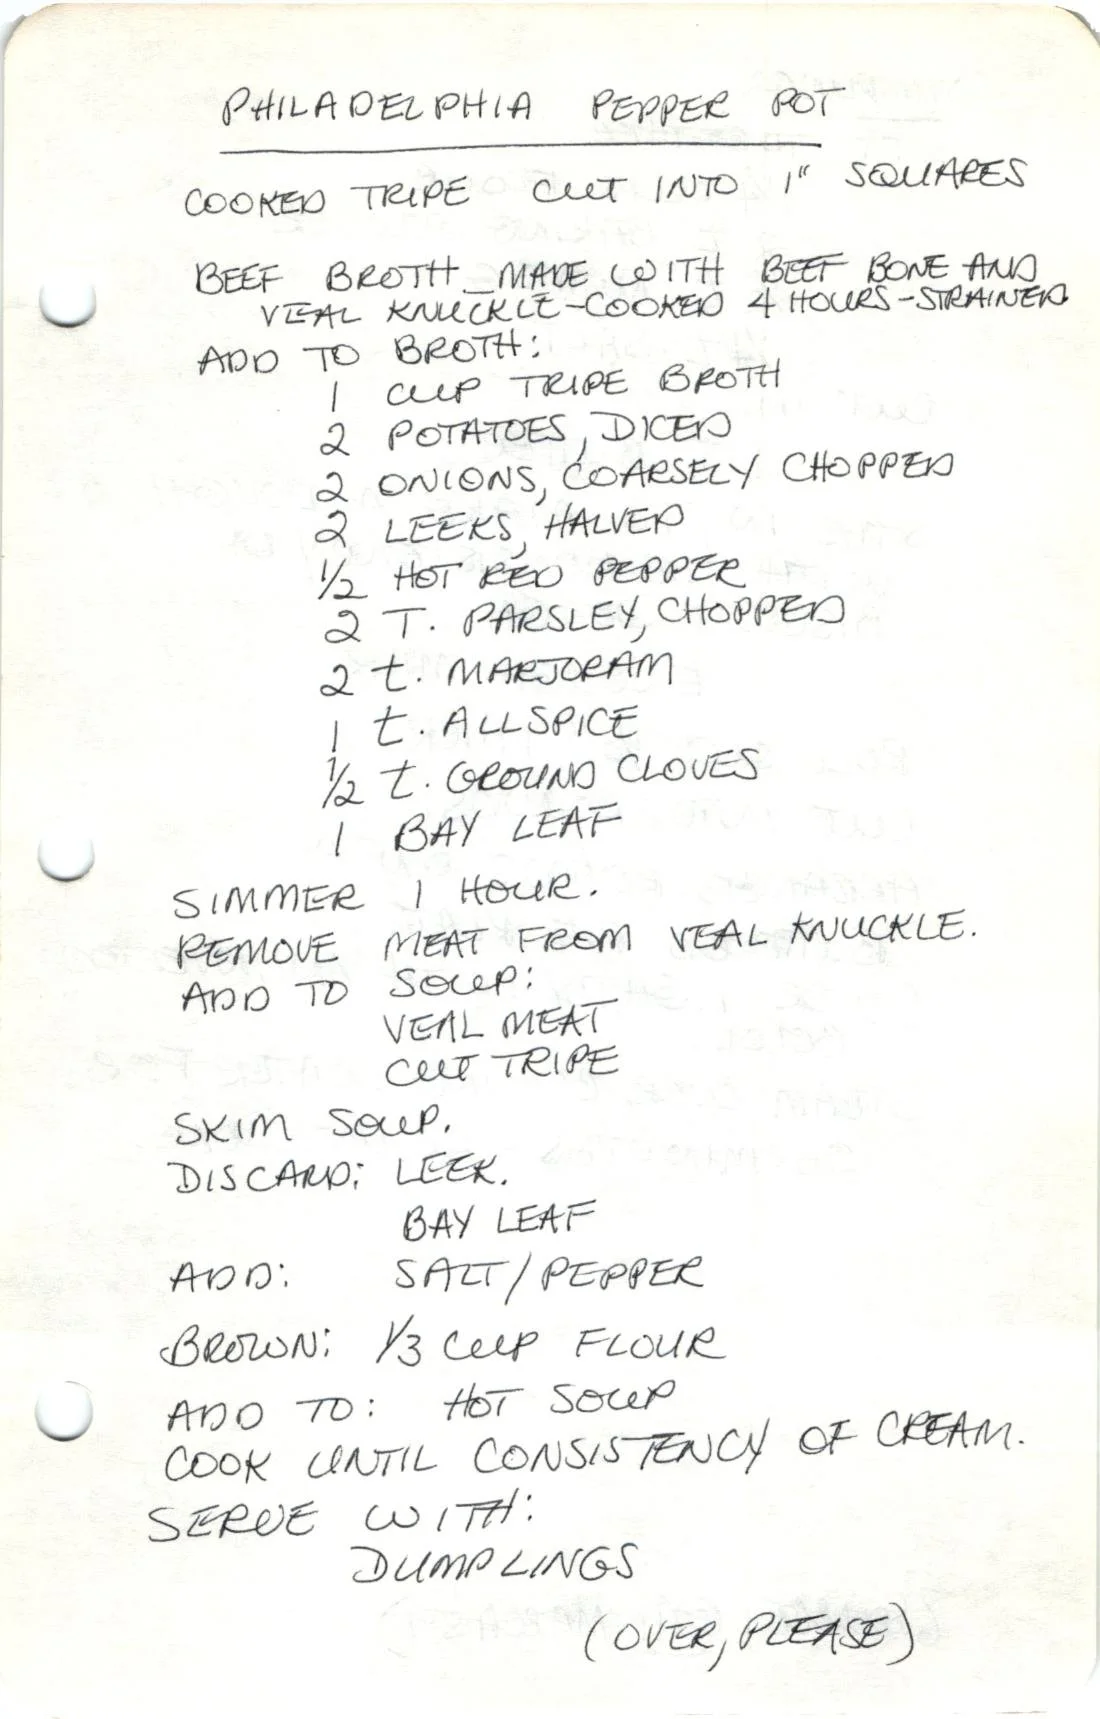 PHILADELPHIA PEPPER POT
COOKED TRIPE CUT INTO 1" SQUARES
BEEF BROTH MADE WITH BEEF BONE AND
VEAL KNUCKLE-COOKED 4 HOURS-STRAINED
ADD TO BROTH:
1 CUP TRIPE BROTH
2 POTATOES, DICED
2 ONIONS, COARSELY CHOPPED
2 LEEKS, HALVED
1/2 HOT RED PEPPER
2 T. PARSLEY, CHOPPED
2 t. MARJORAM
1 t. ALLSPICE
1/2 t. GROUND CLOVES
1 BAY LEAF
SIMMER 1 HOUR.
REMOVE MEAT FROM VEAL KNUCKLE.
ADD TO SOUP:
VEAL MEAT
CUT TRIPE
SKIM SOUP.
DISCARD: LEEK.
BAY LEAF
ADD: SALT/PEPPER
BROWN: 1/3 CUP FLOUR
ADD TO: HOT SOUP
COOK UNTIL CONSISTENCY OF CREAM.
SERVE WITH:
DUMPLINGS
(OVER, PLEASE)